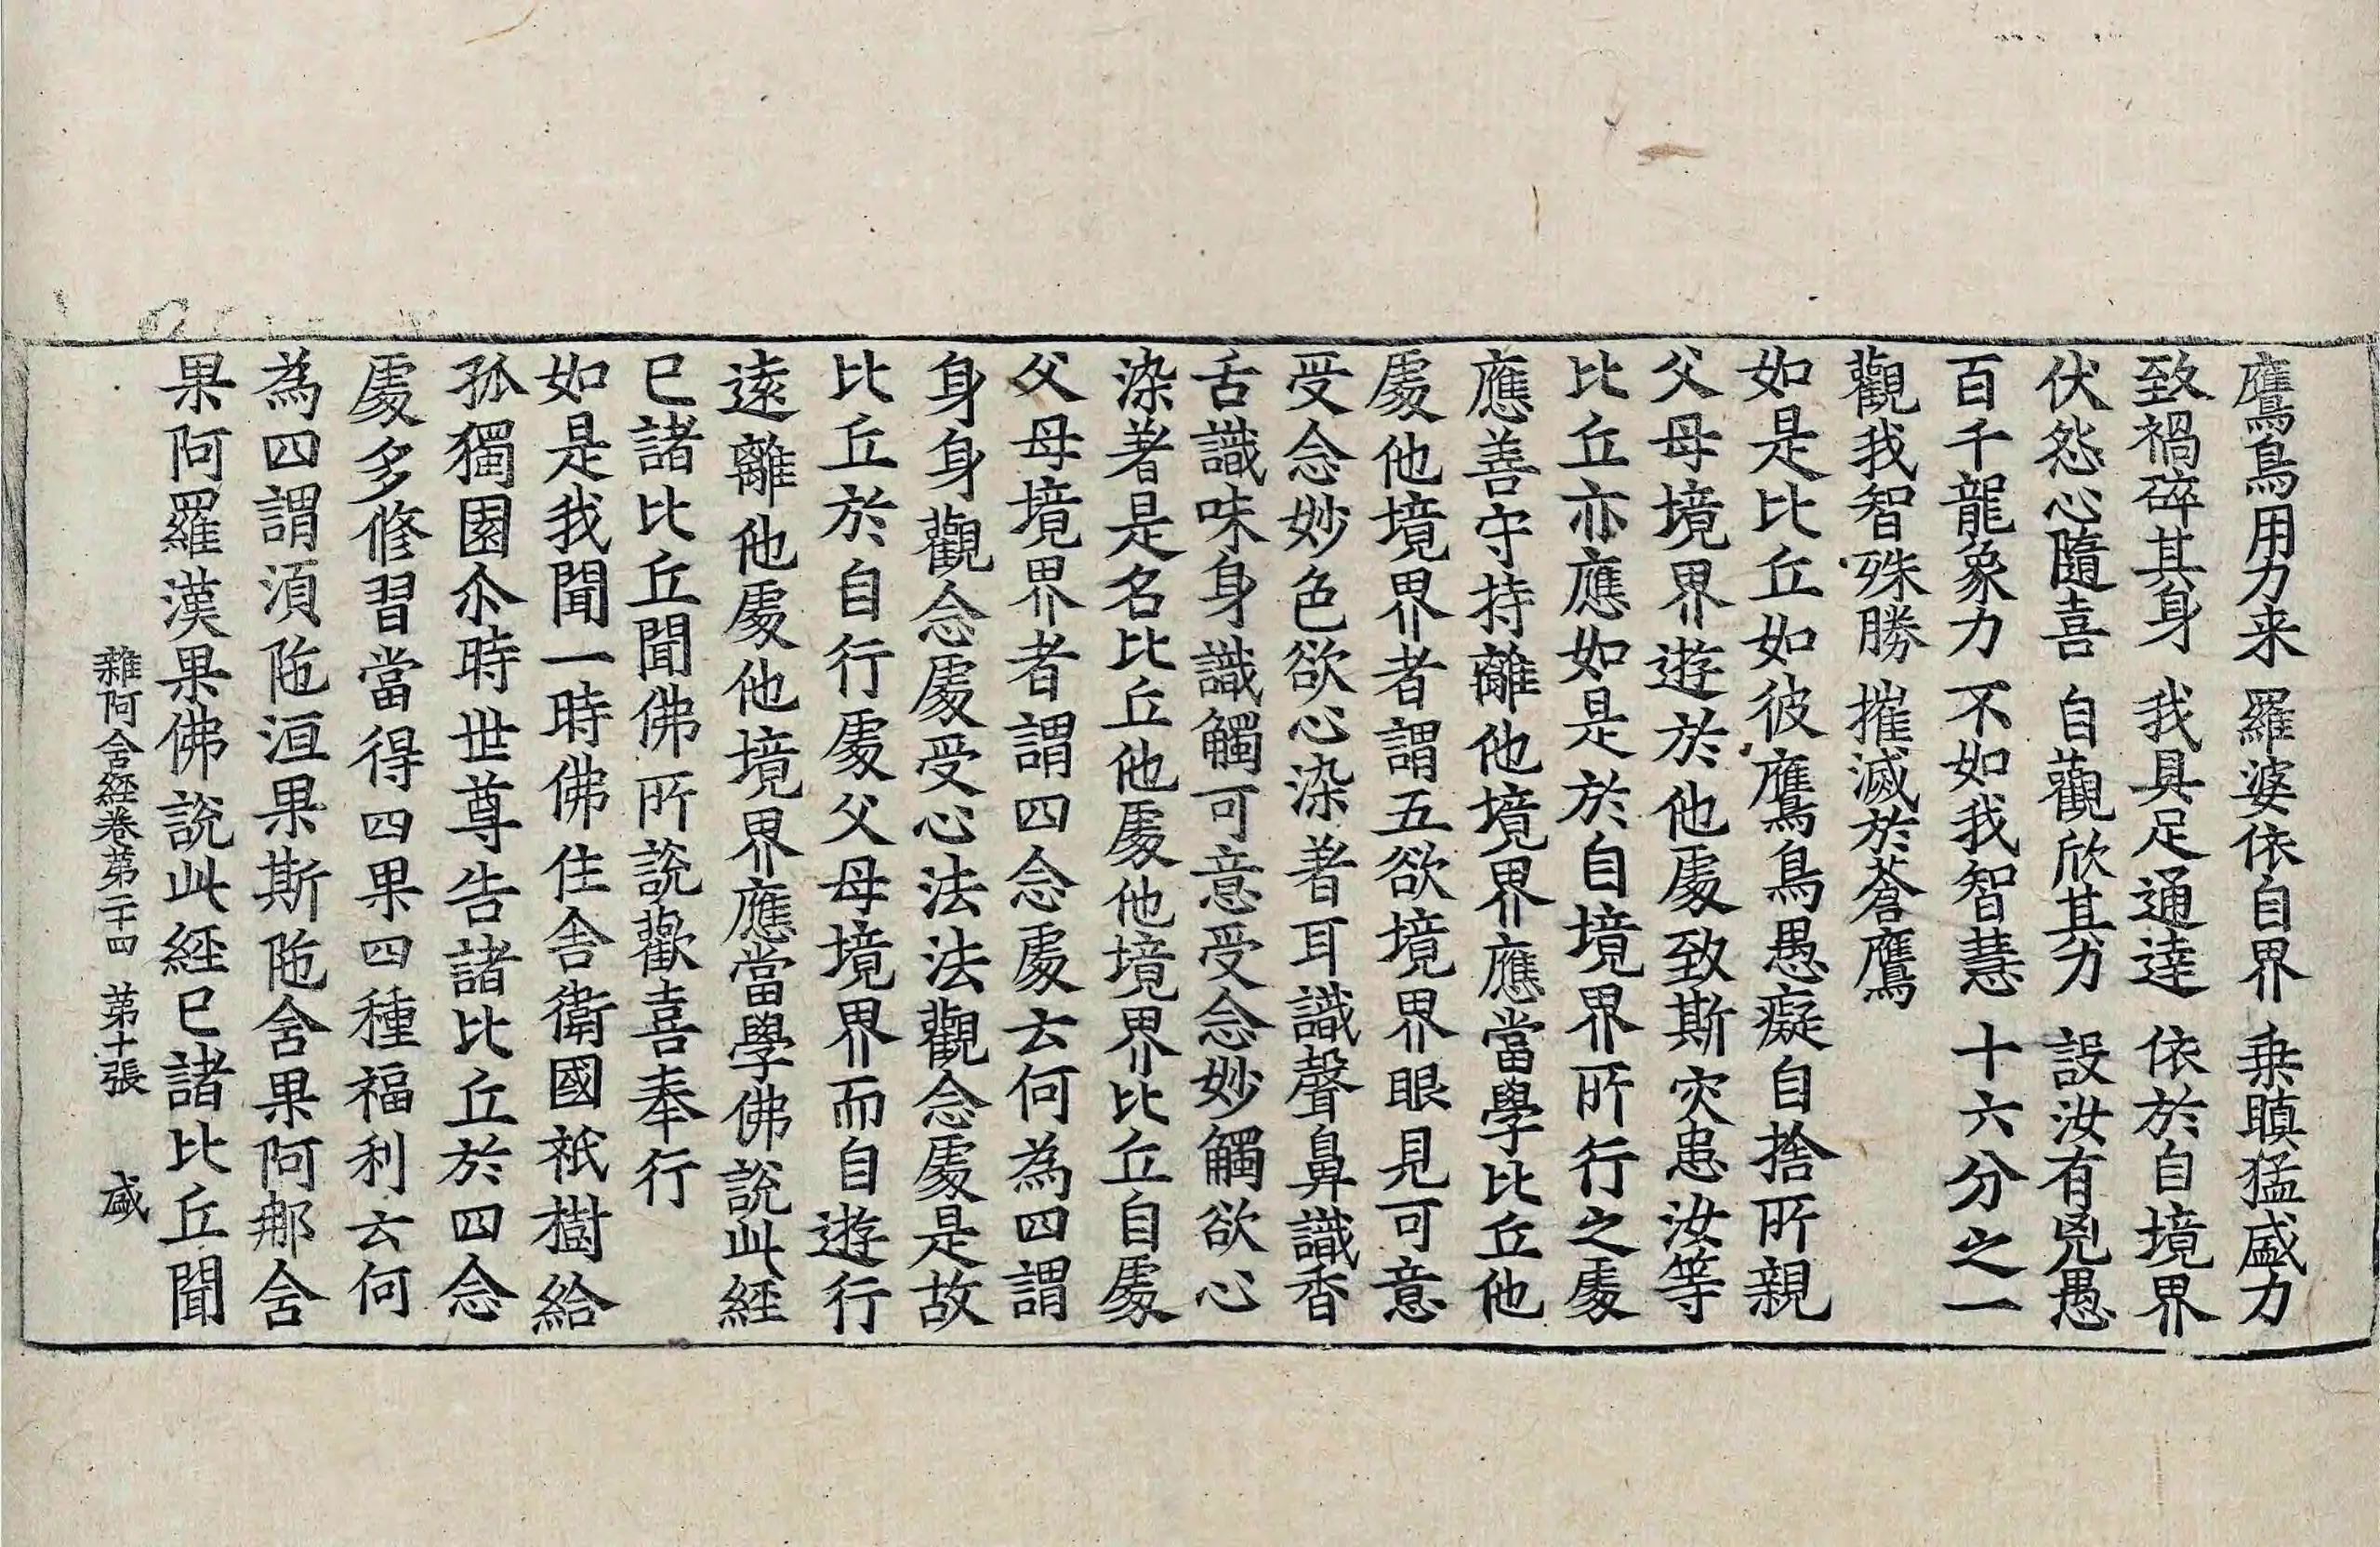 鷹鳥用力来 羅婆依自界 乗瞋猛盛力
致禍碎其身 我具足通達 依於自境界
伏怨心隨喜 自觀欣其力 設汝有兇愚
百千龍象力 不如我智慧 十六分之一
觀我智殊勝 摧滅於蒼鷹
如是比丘如彼鷹鳥愚癡自捨所親
父母境界遊於他處致斯灾患汝等
比丘亦應如是於自境界所行之處
應善守持離他境界應當學比丘他
處他境界者謂五欲境界眼見可意
受念妙色欲心染著耳識聲鼻識香
舌識味身識觸可意受念妙觸欲心
染著是名比丘他處他境界比丘自處
父母境界者謂四念處云何為四謂
身身觀念處受心法法觀念處是故
比丘於自行處父母境界而自遊行
遠離他處他境界應當學佛說此經
已諸比丘聞佛所說歡喜奉行
如是我聞一時佛住舍衛國祇樹給
孤獨園尒時世尊告諸比丘於四念
處多修習當得四果四種福利云何
為四謂湏陁洹果斯陁舍果阿那舍
果阿羅漢果佛說此經已諸比丘聞
雜阿含經卷第二十四 第十張 盛